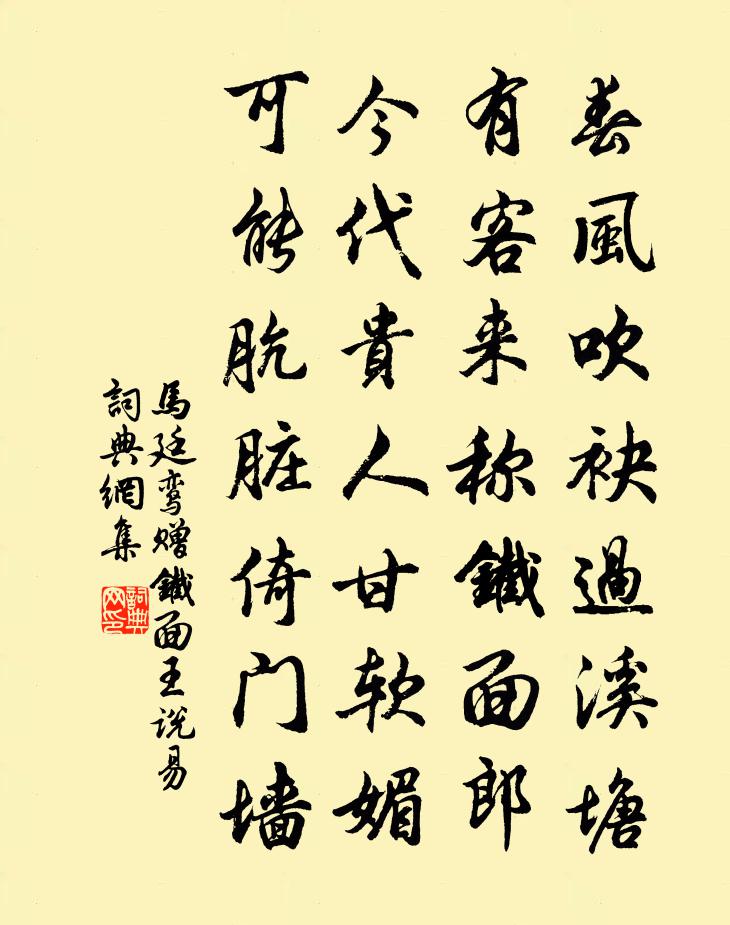 春風吹袂過溪塘
有客来称鐵面郎
今代貴人甘软媚
可能肮脏倚门墙
馬廷鸾赠鐵面王说易
詞典網集
詞典网印